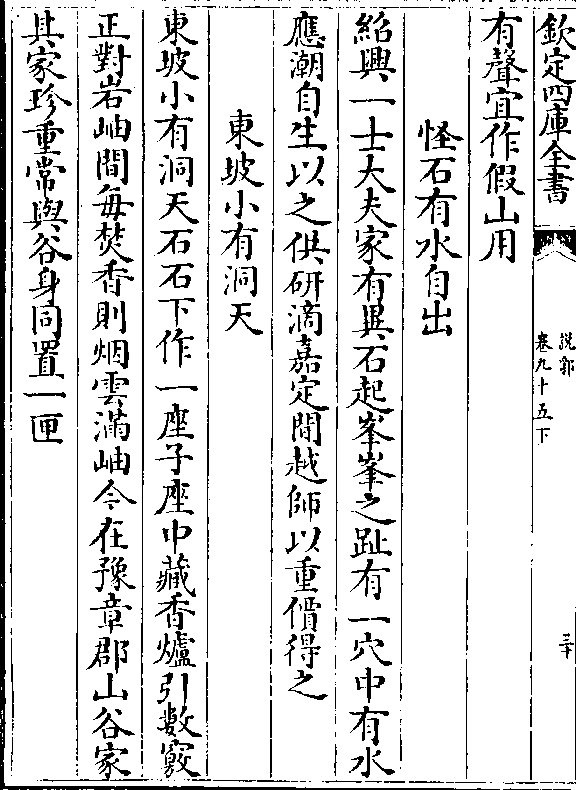 欽定四庫全書
說郛
卷九十五下
三十
有聲宜作假山用
怪石有水自出
紹興一士大夫家有異石起峯峯之趾有一穴中有水
應潮自生以之供研滴嘉定間越師以重價得之
東坡小有洞天
東坡小有洞天石石下作一座子座中藏香爐引數竅
正對岩岫間每焚香則烟雲滿岫今在豫章郡山谷家
其家珍重常與谷身同置一匣